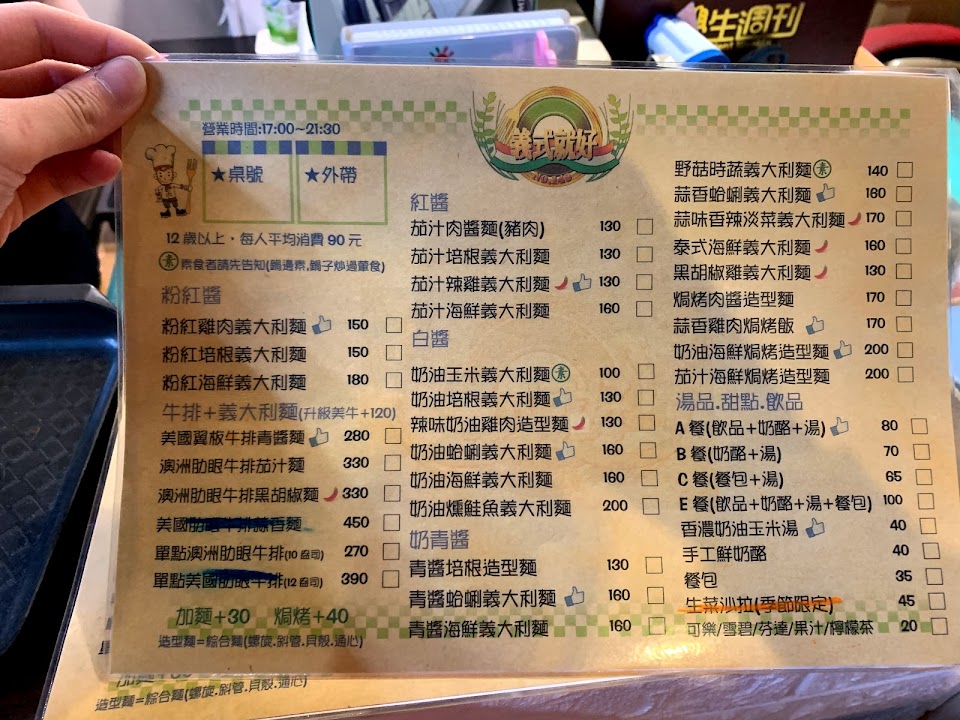 生週刊
義式就好
NO.168
營業時間:17:00~21:30
★桌號
★外帶
12歲以上,每人平均消費90元
素 素食者請先告知(鍋邊素,鍋子炒過葷食)
粉紅醬
粉紅雞肉義大利麵 150
粉紅培根義大利麵 150
粉紅海鮮義大利麵 180
牛排+義大利麵(升級美牛+120)
美國翼板牛排青醬麵 280
澳洲肋眼牛排茄汁麵 330
澳洲肋眼牛排黑胡椒麵 330
美國肋眼牛排蒜香麵 450
單點澳洲肋眼牛排(10盎司) 270
單點美國肋眼牛排(12盎司) 390
加麵+30 焗烤+40
造型麵=綜合麵(螺旋.斜管.貝殼.通心)
紅醬
茄汁肉醬麵(豬肉) 130
茄汁培根義大利麵 130
茄汁辣雞義大利麵 130
茄汁海鮮義大利麵 160
白醬
奶油玉米義大利麵 素 100
奶油培根義大利麵 130
辣味奶油雞肉造型麵 130
奶油蛤蜊義大利麵 160
奶油海鮮義大利麵 160
奶油燻鮭魚義大利麵 200
奶青醬
青醬培根造型麵 130
青醬蛤蜊義大利麵 160
青醬海鮮義大利麵 160
野菇時蔬義大利麵 素 140
蒜香蛤蜊義大利麵 160
蒜味香辣淡菜義大利麵 170
泰式海鮮義大利麵 160
黑胡椒雞義大利麵 130
焗烤肉醬造型麵 170
蒜香雞肉焗烤飯 170
奶油海鮮焗烤造型麵 200
茄汁海鮮焗烤造型麵 200
湯品.甜點.飲品
A餐(飲品+奶酪+湯) 80
B餐(奶酪+湯) 70
C餐(餐包+湯) 65
E餐(飲品+奶酪+湯+餐包) 100
香濃奶油玉米湯 40
手工鮮奶酪 40
餐包 35
生菜沙拉(季節限定) 45
可樂/雪碧/芬達/果汁/檸檬茶 20
造型麵=綜合麵(螺旋.斜管.貝殼.通心)